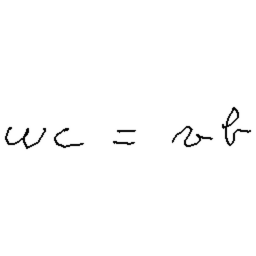 wc = vb